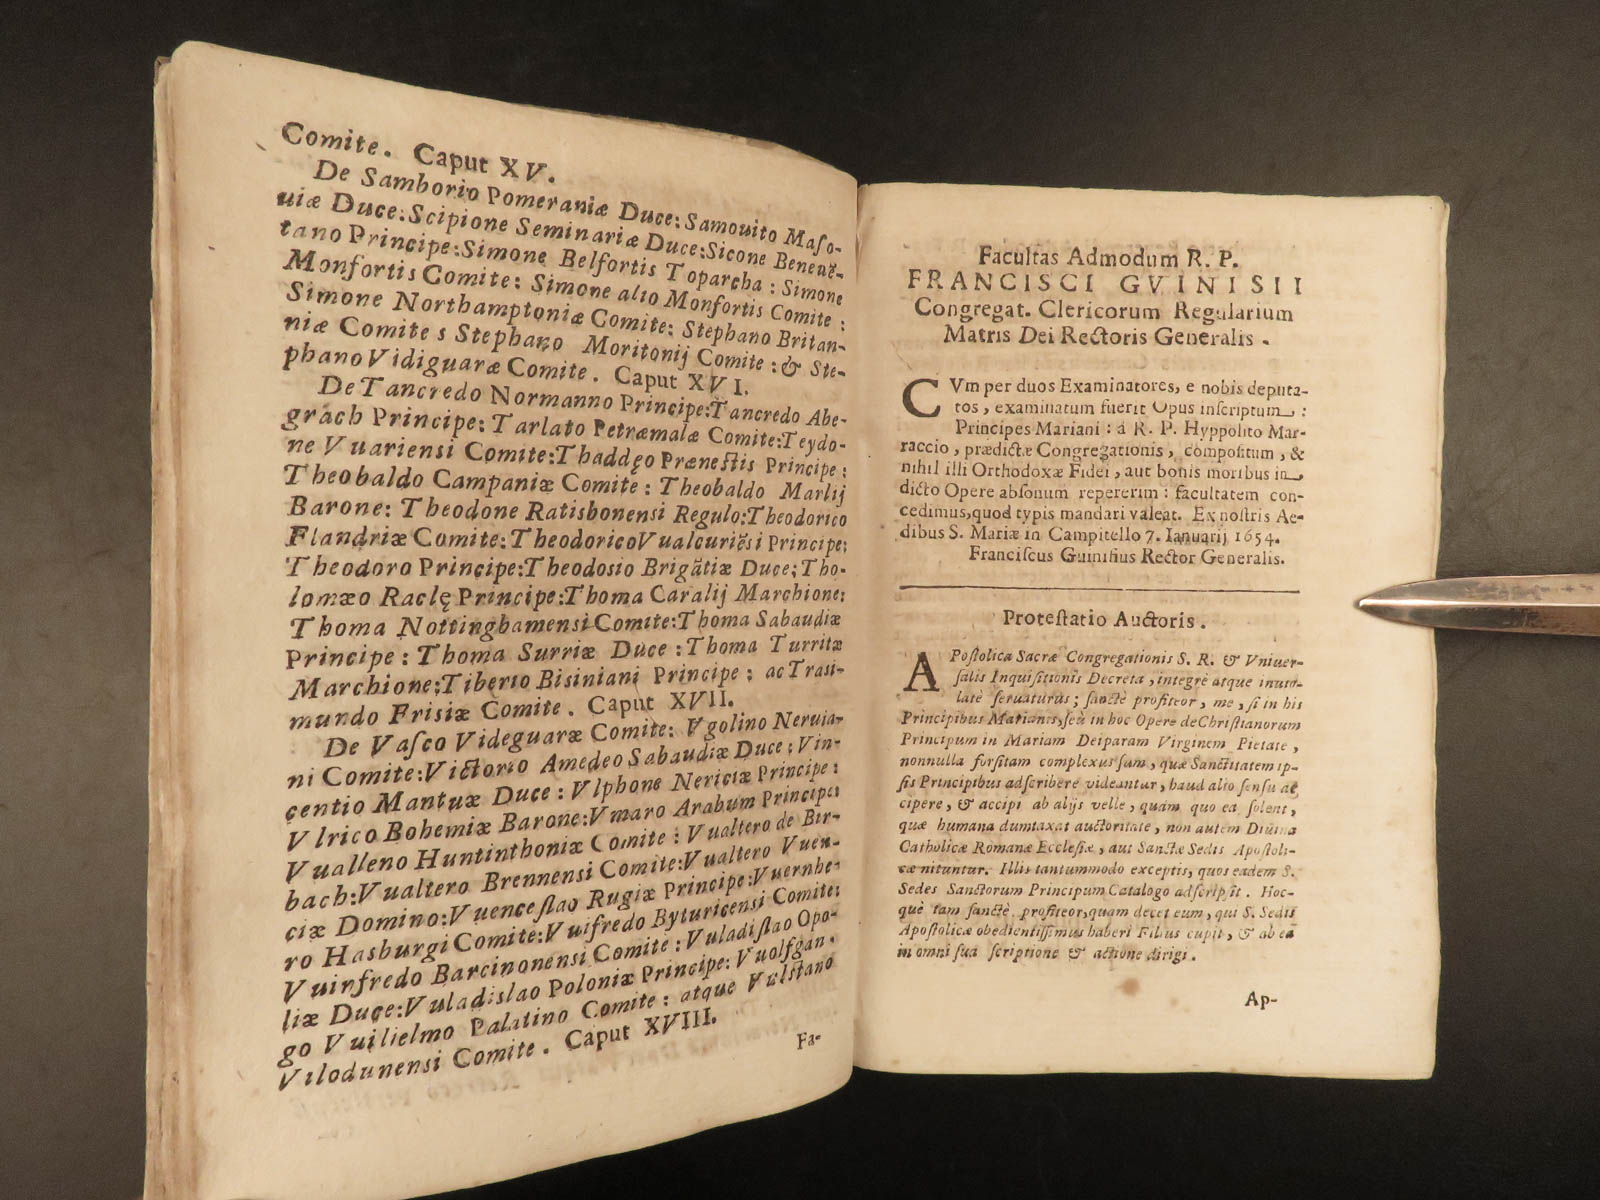 Comite. Caput XV.
De Samborio Pomeraniæ Duce: Samouito Maſo-
uiæ Duce: Scipione Seminariæ Duce: Sicone Beneuē-
tano Principe: Simone Belfortis Toparcha : Simone
Monfortis Comite : Simone alio Monfortis Comite :
Simone Northamptoniæ Comite: Stephano Britan-
niæ Comite s Stephano Moritonij Comite : & Ste-
phano Vidiguaræ Comite. Caput XVI.
De Tancredo Normanno Principe: Tancredo Abe-
grach Principe: Tarlato Petræmalæ Comite: Teydo-
ne Vuariensi Comite: Thaddęo Prænestis Principe :
Theobaldo Campaniæ Comite : Theobaldo Marlij
Barone: Theodone Ratisbonensi Regulo: Theodorico
Flandriæ Comite: Theodorico Vualcuriēsi Principe:
Theodoro Principe: Theodosio Brigātiæ Duce; Tho-
lomæo Raclę Principe: Thoma Caralij Marchione:
Thoma Nottinghamensi Comite: Thoma Sabaudiæ
Principe : Thoma Surriæ Duce : Thoma Turritæ
Marchione; Tiberio Bisiniani Principe ; ac Trasi-
mundo Frisiæ Comite. Caput XVII.
De Vaſco Videguaræ Comite: Vgolino Neruia-
ni Comite: Victorio Amedeo Sabaudiæ Duce ; Vin-
centio Mantuæ Duce : Vlphone Nericiæ Principe :
Vlrico Bohemiæ Barone: Vmaro Arabum Principe:
Vualleno Huntinthoniæ Comite : Vualtero de Bir-
bach: Vualtero Brennensi Comite: Vualtero Vuen-
ciæ Domino: Vuenceſlao Rugiæ Principe: Vuernhe-
ro Hasburgi Comite: Vuifredo Byturicensi Comite:
Vuinfredo Barcinonensi Comite : Vuladiſlao Opo-
liæ Duce: Vuladislao Poloniæ Principe: Vuolfgan-
go Vuilielmo Palatino Comite : atque Vulstano
Vilodunensi Comite. Caput XVIII.
Fa-
Facultas Admodum R. P.
FRANCISCI GVINISII
Congregat. Clericorum Regularium
Matris Dei Rectoris Generalis.
CVm per duos Examinatores, e nobis deputa-
tos, examinatum fuerit Opus inſcriptum :
Principes Mariani : a R. P. Hyppolito Mar-
raccio, prædictæ Congregationis, compoſitum, &
nihil illi Orthodoxæ Fidei, aut bonis moribus in
dicto Opere abſonum repererim : facultatem con-
cedimus, quod typis mandari valeat. Ex noſtris Ae-
dibus S. Mariæ in Campitello 7. Ianuarij 1654.
Franciſcus Guiniſius Rector Generalis.
Proteſtatio Auctoris.
APoſtolica Sacræ Congregationis S. R. & Vniuer-
ſalis Inquiſitionis Decreta, integrè atque inuio-
latè ſeruaturus ; ſanctè profiteor, me, ſi in his
Principibus Marianis, ſeù in hoc Opere de Chriſtianorum
Principum in Mariam Deiparam Virginem Pietate,
nonnulla forſitam complexus ſum, quæ Sanctitatem ip-
ſis Principibus adſcribere videantur, haud alio ſenſu ac
cipere, & accipi ab alijs velle, quàm quo ea ſolent,
quæ humana dumtaxat auctoritate, non autem Diuina
Catholicæ Romanæ Eccleſiæ, aut Sanctæ Sedis Apoſtoli-
cæ nituntur. Illis tantummodo exceptis, quos eadem S.
Sedes Sanctorum Principum Catalogo adſcripſit. Hoc-
què tam ſanctè profiteor, quam decet eum, qui S. Sedis
Apoſtolicæ obedientiſſimus haberi Filius cupit, & ab ea
in omni ſua ſcriptione & actione dirigi.
Ap-